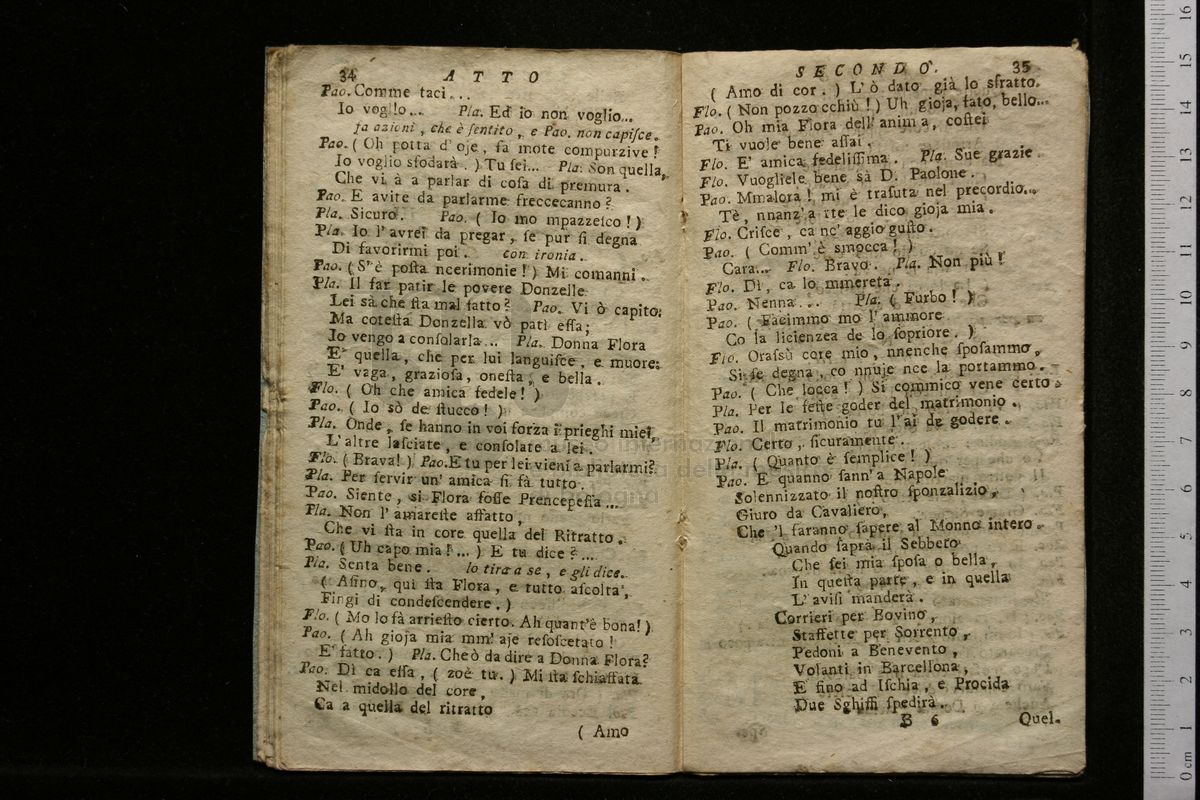 34 ATTO
Pao. Comme taci...
Io voglio... Pla. Ed io non voglio...
fa azioni, che è sentito, e Pao. non capisce.
Pao. ( Oh potta d'oje, sa mote compurzive!
Io voglio sfodarà. ) Tu sei... Pla. Son quella,
Che vi à a parlar di cosa di premura.
Pao. E avite da parlarme freccecanno?
Pla. Sicuro. Pao. ( Io mo mpazzesco! )
Pla. Io l'avrei da pregar, se pur si degna
Di favorirmi poi. con ironia.
Pao. ( S'è posta ncerimonie! ) Mi comanni.
Pla. Il far patir le povere Donzelle
Lei sà che sta mal fatto? Pao. Vi ò capito;
Ma cotesta Donzella vò patì essa;
Io vengo a consolarla... Pla. Donna Flora
E' quella, che per lui languisce, e muore;
E' vaga, graziosa, onesta, e bella.
Flo. ( Oh che amica fedele! )
Pao. ( Io sò de stucco! )
Pla. Onde, se hanno in voi forza i prieghi miei,
L'altre lasciate, e consolate a lei.
Flo. ( Brava! ) Pao. E tu per lei vieni a parlarmi?
Pla. Per servir un' amica si fà tutto.
Pao. Siente, si Flora fosse Prencepessa...
Pla. Non l'amareste affatto,
Che vi sta in core quella del Ritratto.
Pao. ( Uh capo mia!... ) E tu dice?...
Pla. Senta bene. lo tira a se, e gli dice.
( Asino, qui sta Flora, e tutto ascolta,
Fingi di condescendere. )
Flo. ( Mo lo fà arriesto cierto. Ah quant'è bona! )
Pao. ( Ah gioja mia mm' aje resoscetato!
E' fatto. ) Pla. Che ò da dire a Donna Flora?
Pao. Dì ca essa, ( zoè tu. ) Mi sta schiaffata
Nel midollo del core,
Ca a quella del ritratto
( Amo
SECONDO. 35
( Amo di cor. ) L'ò dato già lo sfratto.
Flo. ( Non pozzo cchiù! ) Uh gioja, fato, bello...
Pao. Oh mia Flora dell'anima, costei
Ti vuole bene assai.
Flo. E' amica fedelissima. Pla. Sue grazie
Flo. Vuogliele bene sà D. Paolone.
Pao. Mmalora! mi è trasuta nel precordio...
Tè, nnanz'a tte le dico gioja mia.
Flo. Crisce, ca nc' aggio gusto.
Pao. ( Comm' è smocca! )
Cara... Flo. Bravo. Pla. Non più!
Flo. Dì, ca lo mmereta.
Pao. Nenna... Pla. ( Furbo! )
Pao. ( Facimmo mo l'ammore
Co la licienzea de lo sopriore. )
Flo. Orassù core mio, nnenche sposammo,
Si se degna, co nnuje nce la portammo.
Pao. ( Che locca! ) Si commico vene certo
Pla. Per le feste goder del matrimonio.
Pao. Il matrimonio tu l'ai de godere.
Flo. Certo, sicuramente.
Pla. ( Quanto è semplice! )
Pao. E quanno sann'a Napole
Solennizzato il nostro sponzalizio,
Giuro da Cavaliero,
Che 'l faranno sapere al Monno intero.
Quando saprà il Sebbeto
Che sei mia sposa o bella,
In questa parte, e in quella
L'avisi manderà.
Corrieri per Bovino,
Staffette per Sorrento,
Pedoni a Benevento,
Volanti in Barcellona,
E fino ad Ischia, e Procida
Due Sghiffi spedirà.
B 6 Quel-